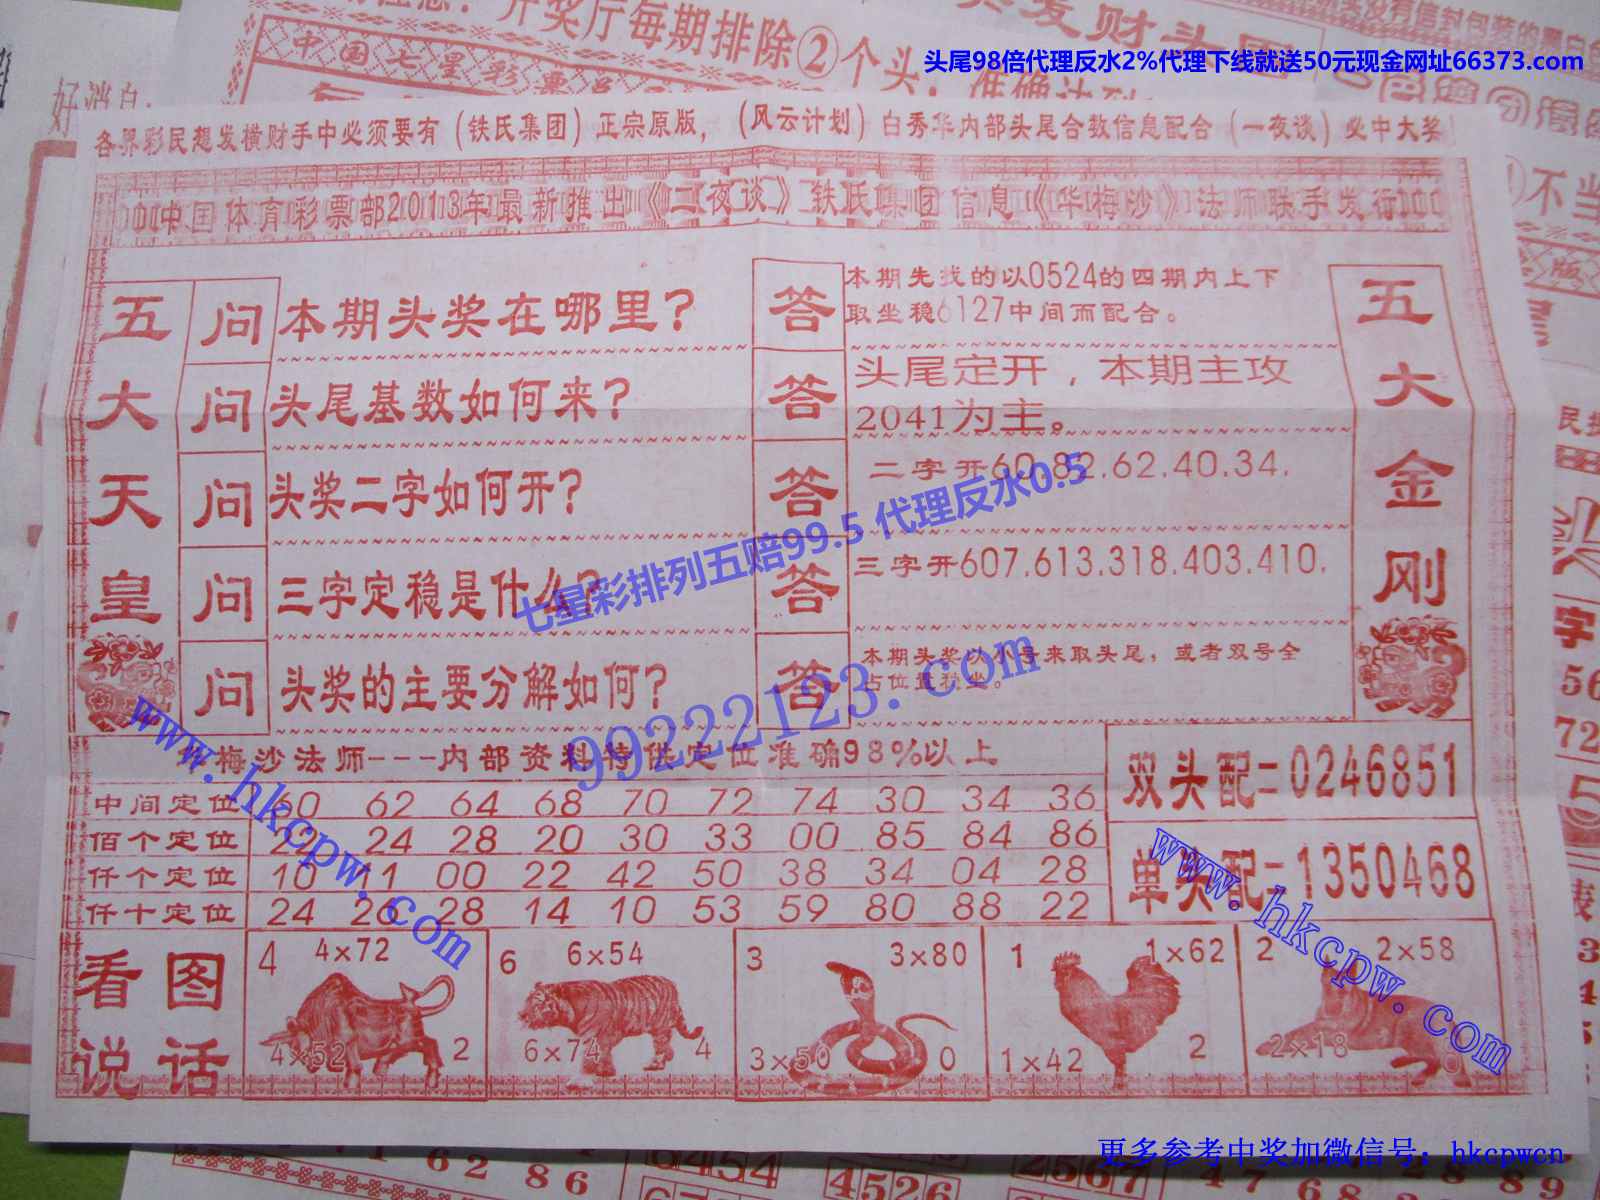 开奖厅每期排除②个头，准确达到
中国七星彩票
头尾98倍代理反水2%代理下线就送50元现金网址66373.com
好消息:
各界彩民想发横财手中必须要有（铁氏集团）正宗原版，（风云计划）白秀华内部头尾合数信息配合（一夜谈）必中大奖
中国体育彩票部2013年最新推出《二夜谈》铁氏集团信息《华梅沙》法师联手发行
五大天皇
问 本期头奖在哪里？
答 本期先找的以0524的四期内上下
取坐稳6127中间而配合。
问 头尾基数如何来？
答 头尾定开，本期主攻
2041为主。
问 头奖二字如何开？
答 二字开60.82.62.40.34.
问 三字定稳是什么？
答 三字开607.613.318.403.410.
问 头奖的主要分解如何？
答 本期头奖以小号来取头尾，或者双号全
占位置稳坐。
五大金刚
七星彩排列五赔99.5 代理反水0.5
99222123.com
www.hkcpw.com
梅沙法师---内部资料特供定位准确98%以上
中间定位 60 62 64 68 70 72 74 30 34 36
佰个定位 22 24 28 20 30 33 00 85 84 86
仟个定位 10 11 00 22 42 50 38 34 04 28
仟十定位 24 26 28 14 10 53 59 80 88 22
双头配=0246851
单头配=1350468
www.hkcpw.com
看图
说话
4 4×72
4×52 2
6 6×54
6×74 4
3 3×80
3×50 0
1 1×62
1×42 2
2 2×58
2×18
更多参考中奖加微信号：hkcpwcn
62 86
6454
4526
2567